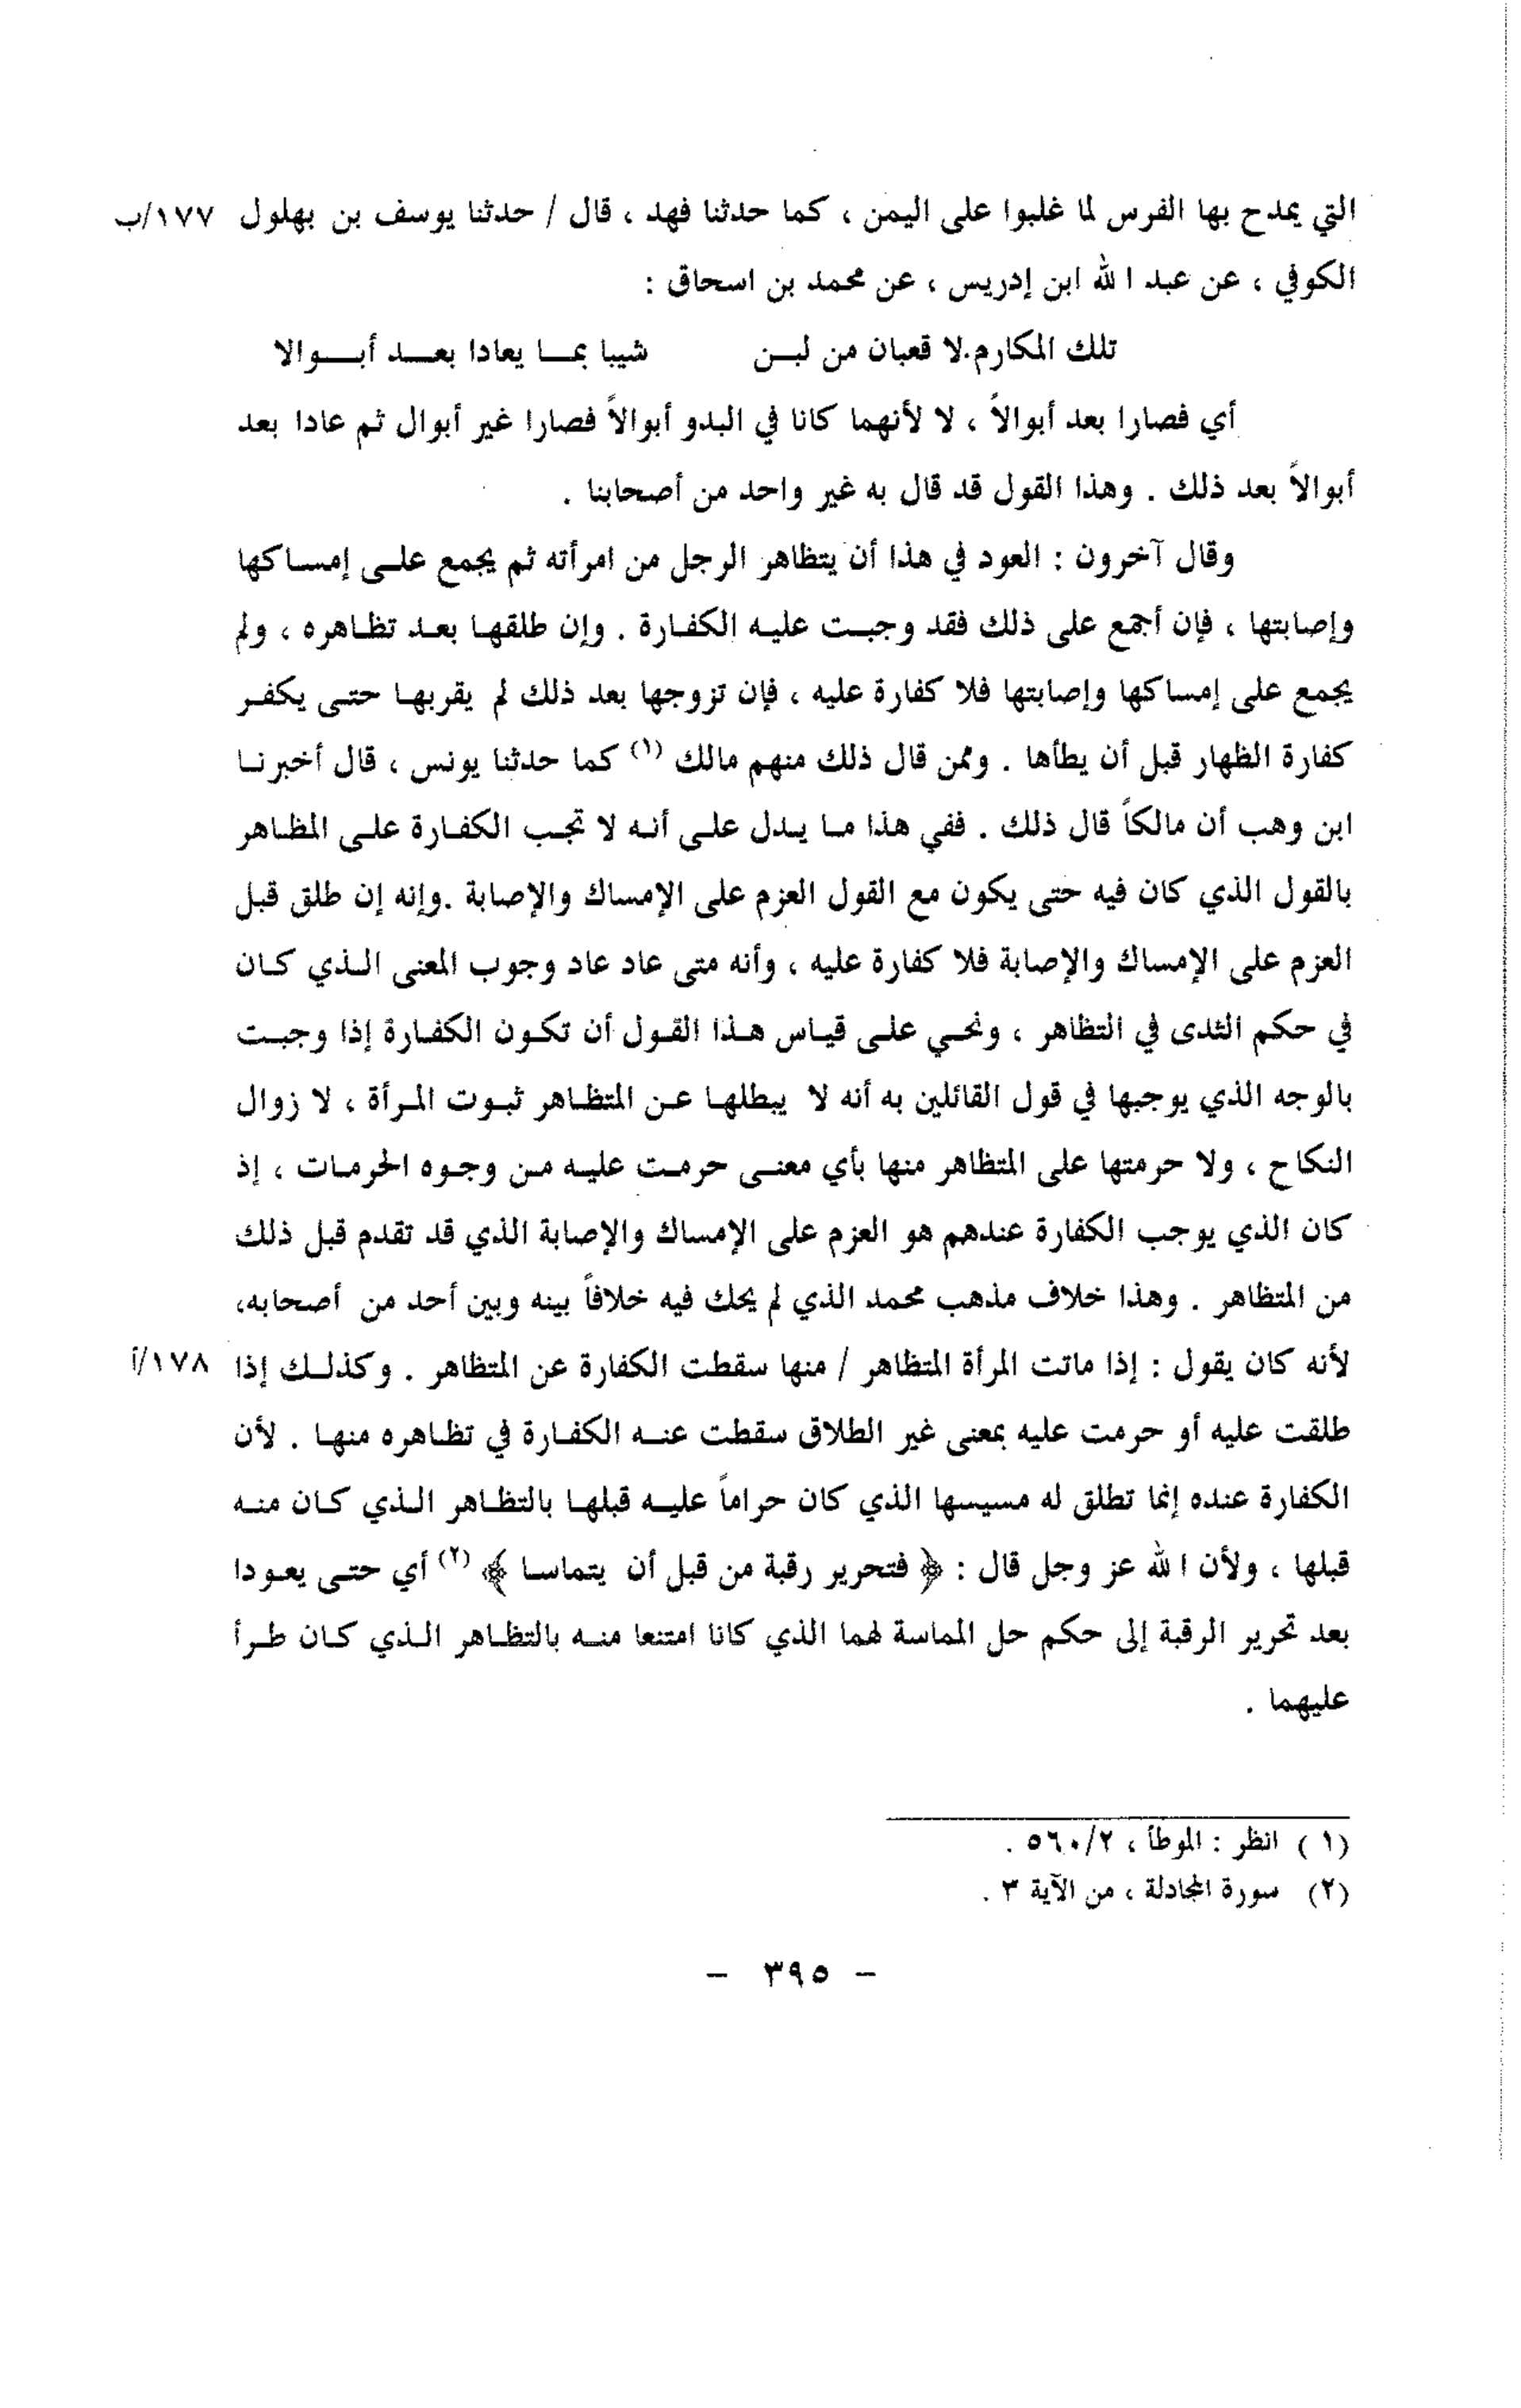 التي يمدح بها الفرس لما غلبوا على اليمن ، كما حدثنا فهد ، قال / حدثنا يوسف بن بهلول ١٧٧/ب
الكوفي ، عن عبد الله ابن إدريس ، عن محمد بن اسحاق :
تلك المكارم.لا قعبان من لبن شيبا بما يعادا بعد أبوالا
أي فصارا بعد أبوالاً ، لا لأنهما كانا في البدو أبوالاً فصارا غير أبوال ثم عادا بعد
أبوالاً بعد ذلك . وهذا القول قد قال به غير واحد من أصحابنا .
وقال آخرون : العود في هذا أن يتظاهر الرجل من امرأته ثم يجمع على إمساكها
وإصابتها ، فإن أجمع على ذلك فقد وجبت عليه الكفارة . وإن طلقها بعد تظاهره ، ولم
يجمع على إمساكها وإصابتها فلا كفارة عليه ، فإن تزوجها بعد ذلك لم يقربها حتى يكفر
كفارة الظهار قبل أن يطأها . وممن قال ذلك منهم مالك (١) كما حدثنا يونس ، قال أخبرنا
ابن وهب أن مالكاً قال ذلك . ففي هذا ما يدل على أنه لا تجب الكفارة على المظاهر
بالقول الذي كان فيه حتى يكون مع القول العزم على الإمساك والإصابة .وإنه إن طلق قبل
العزم على الإمساك والإصابة فلا كفارة عليه ، وأنه متى عاد عاد وجوب المعنى الذي كان
في حكم الثدى في التظاهر ، ونحي على قياس هذا القول أن تكون الكفارة إذا وجبت
بالوجه الذي يوجبها في قول القائلين به أنه لا يبطلها عن المتظاهر ثبوت المرأة ، لا زوال
النكاح ، ولا حرمتها على المتظاهر منها بأي معنى حرمت عليه من وجوه الحرمات ، إذ
كان الذي يوجب الكفارة عندهم هو العزم على الإمساك والإصابة الذي قد تقدم قبل ذلك
من المتظاهر . وهذا خلاف مذهب محمد الذي لم يحك فيه خلافاً بينه وبين أحد من أصحابه،
لأنه كان يقول : إذا ماتت المرأة المتظاهر / منها سقطت الكفارة عن المتظاهر . وكذلك إذا ١٧٨/أ
طلقت عليه أو حرمت عليه بمعنى غير الطلاق سقطت عنه الكفارة في تظاهره منها . لأن
الكفارة عنده إنما تطلق له مسيسها الذي كان حراماً عليه قبلها بالتظاهر الذي كان منه
قبلها ، ولأن الله عز وجل قال : ﴿ فتحرير رقبة من قبل أن يتماسا ﴾ (٢) أي حتى يعودا
بعد تحرير الرقبة إلى حكم حل المماسة لهما الذي كانا امتنعا منه بالتظاهر الذي كان طرأ
عليهما .
(١) انظر : الموطأ ، ٥٦٠/٢ .
(٢) سورة المجادلة ، من الآية ٣ .
- ٣٩٥ -